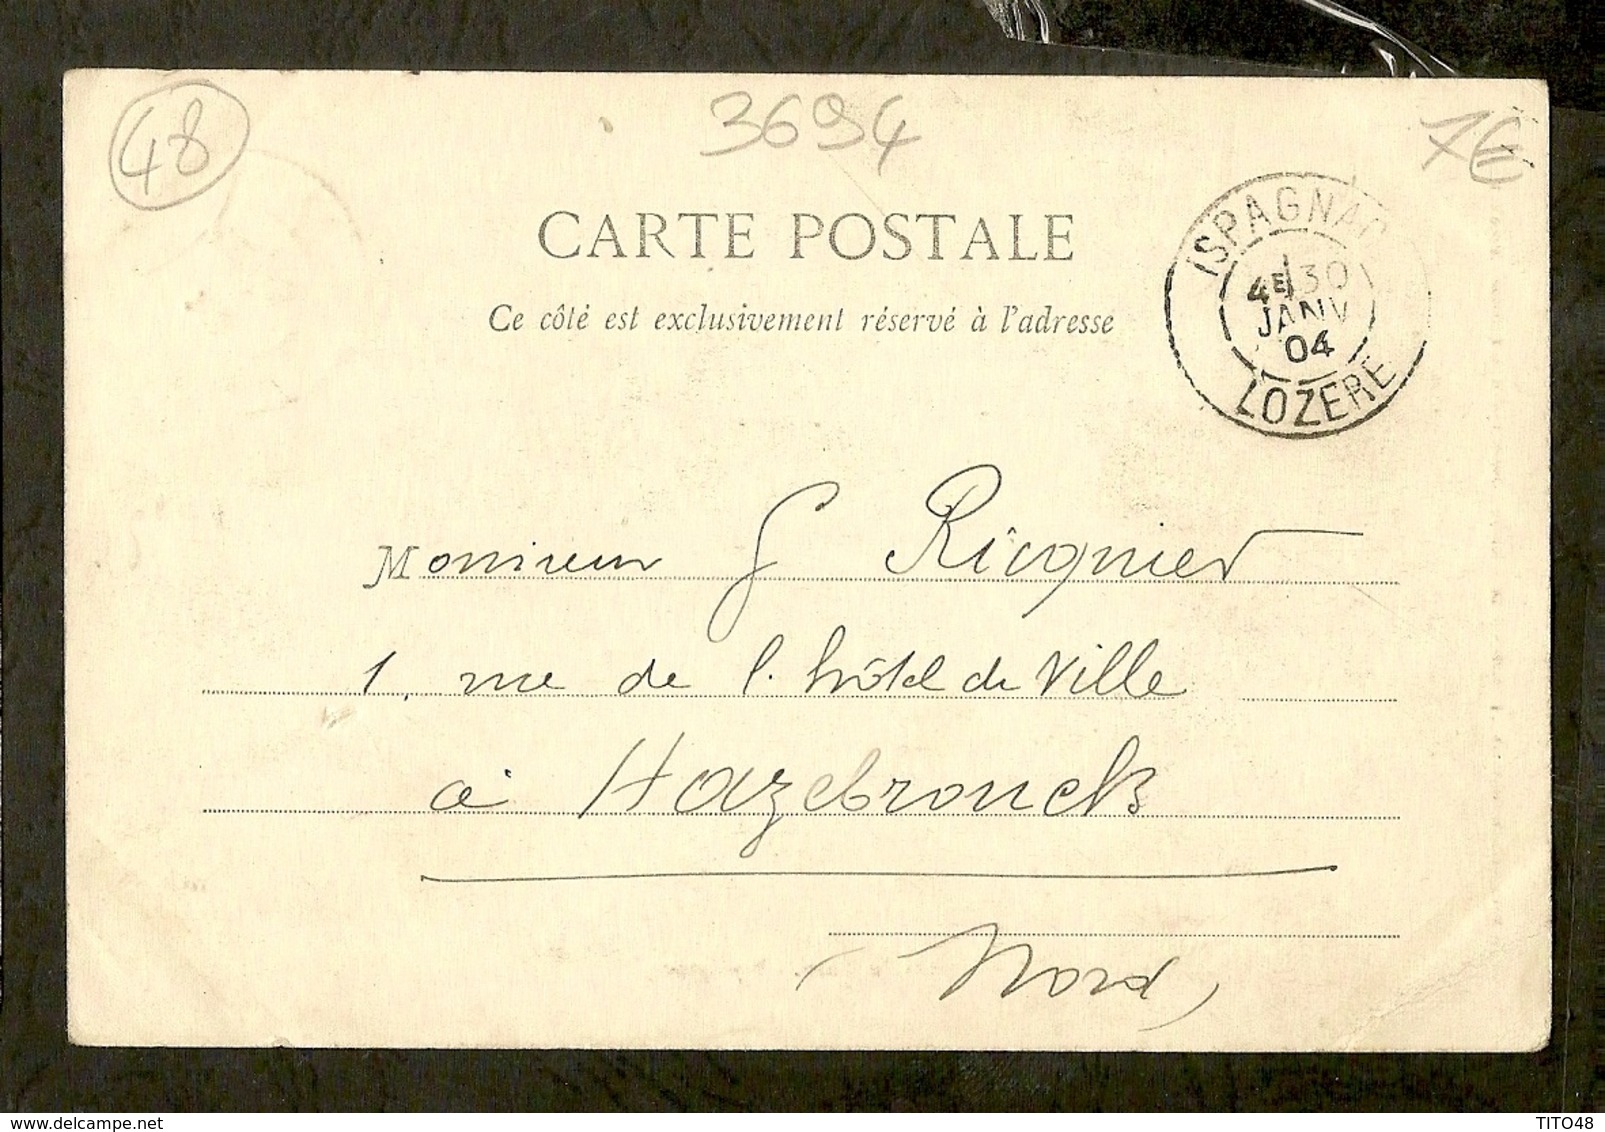 48
3694
7€
CARTE POSTALE
Ce côté est exclusivement réservé à l'adresse
ISPAGNAC
4E 30
JANV
04
LOZERE
Monsieur G Ricquier
1, rue de l. hôtel de Ville
à Hazebrouck
(Nord)
TITO48